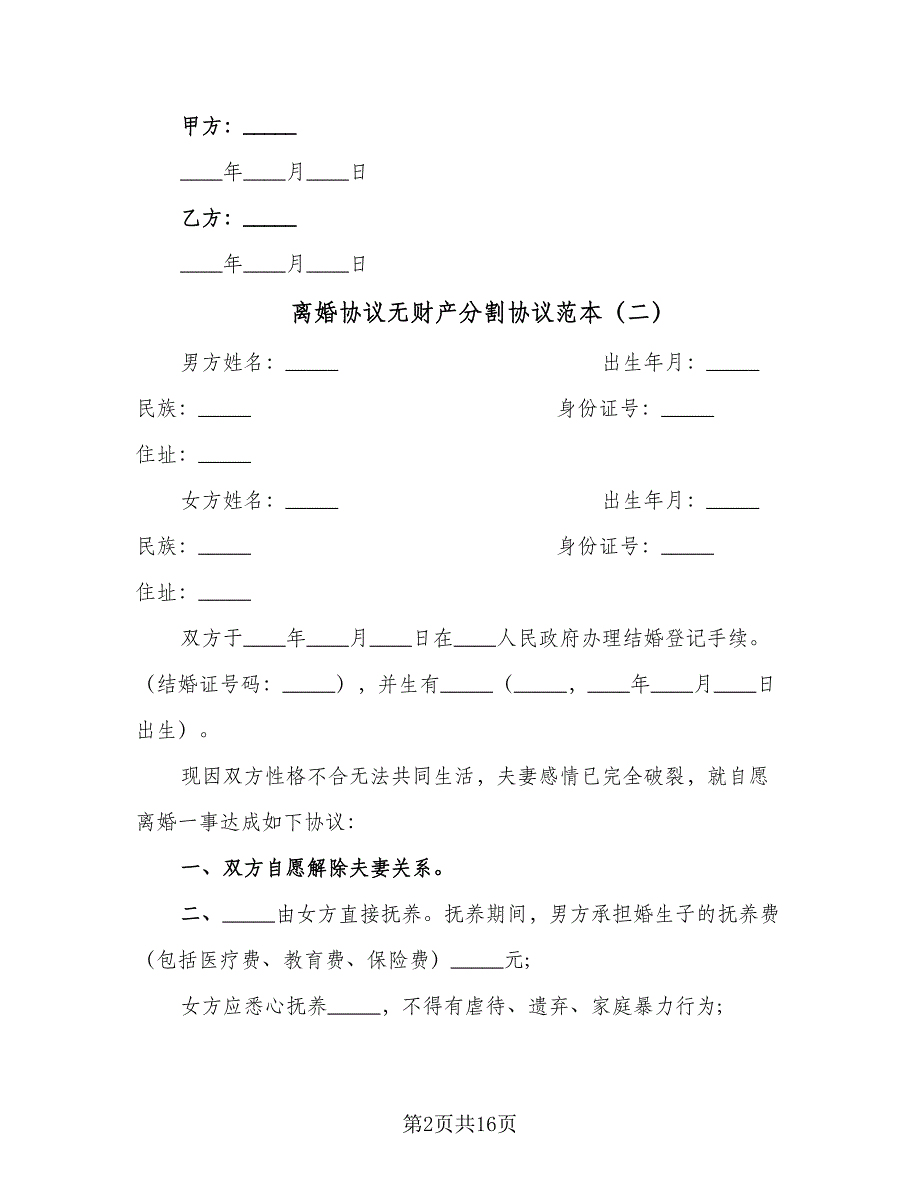 甲方：_____
____年____月____日
乙方：_____
____年____月____日
离婚协议无财产分割协议范本（二）
男方姓名：_____ 出生年月：_____
民族：_____ 身份证号：_____
住址：_____
女方姓名：_____ 出生年月：_____
民族：_____ 身份证号：_____
住址：_____
双方于____年____月____日在____人民政府办理结婚登记手续。
（结婚证号码：_____），并生有_____（_____，____年____月____日
出生）。
现因双方性格不合无法共同生活，夫妻感情已完全破裂，就自愿
离婚一事达成如下协议：
一、双方自愿解除夫妻关系。
二、_____由女方直接抚养。抚养期间，男方承担婚生子的抚养费
（包括医疗费、教育费、保险费）_____元;
女方应悉心抚养_____，不得有虐待、遗弃、家庭暴力行为;
第2页共16页